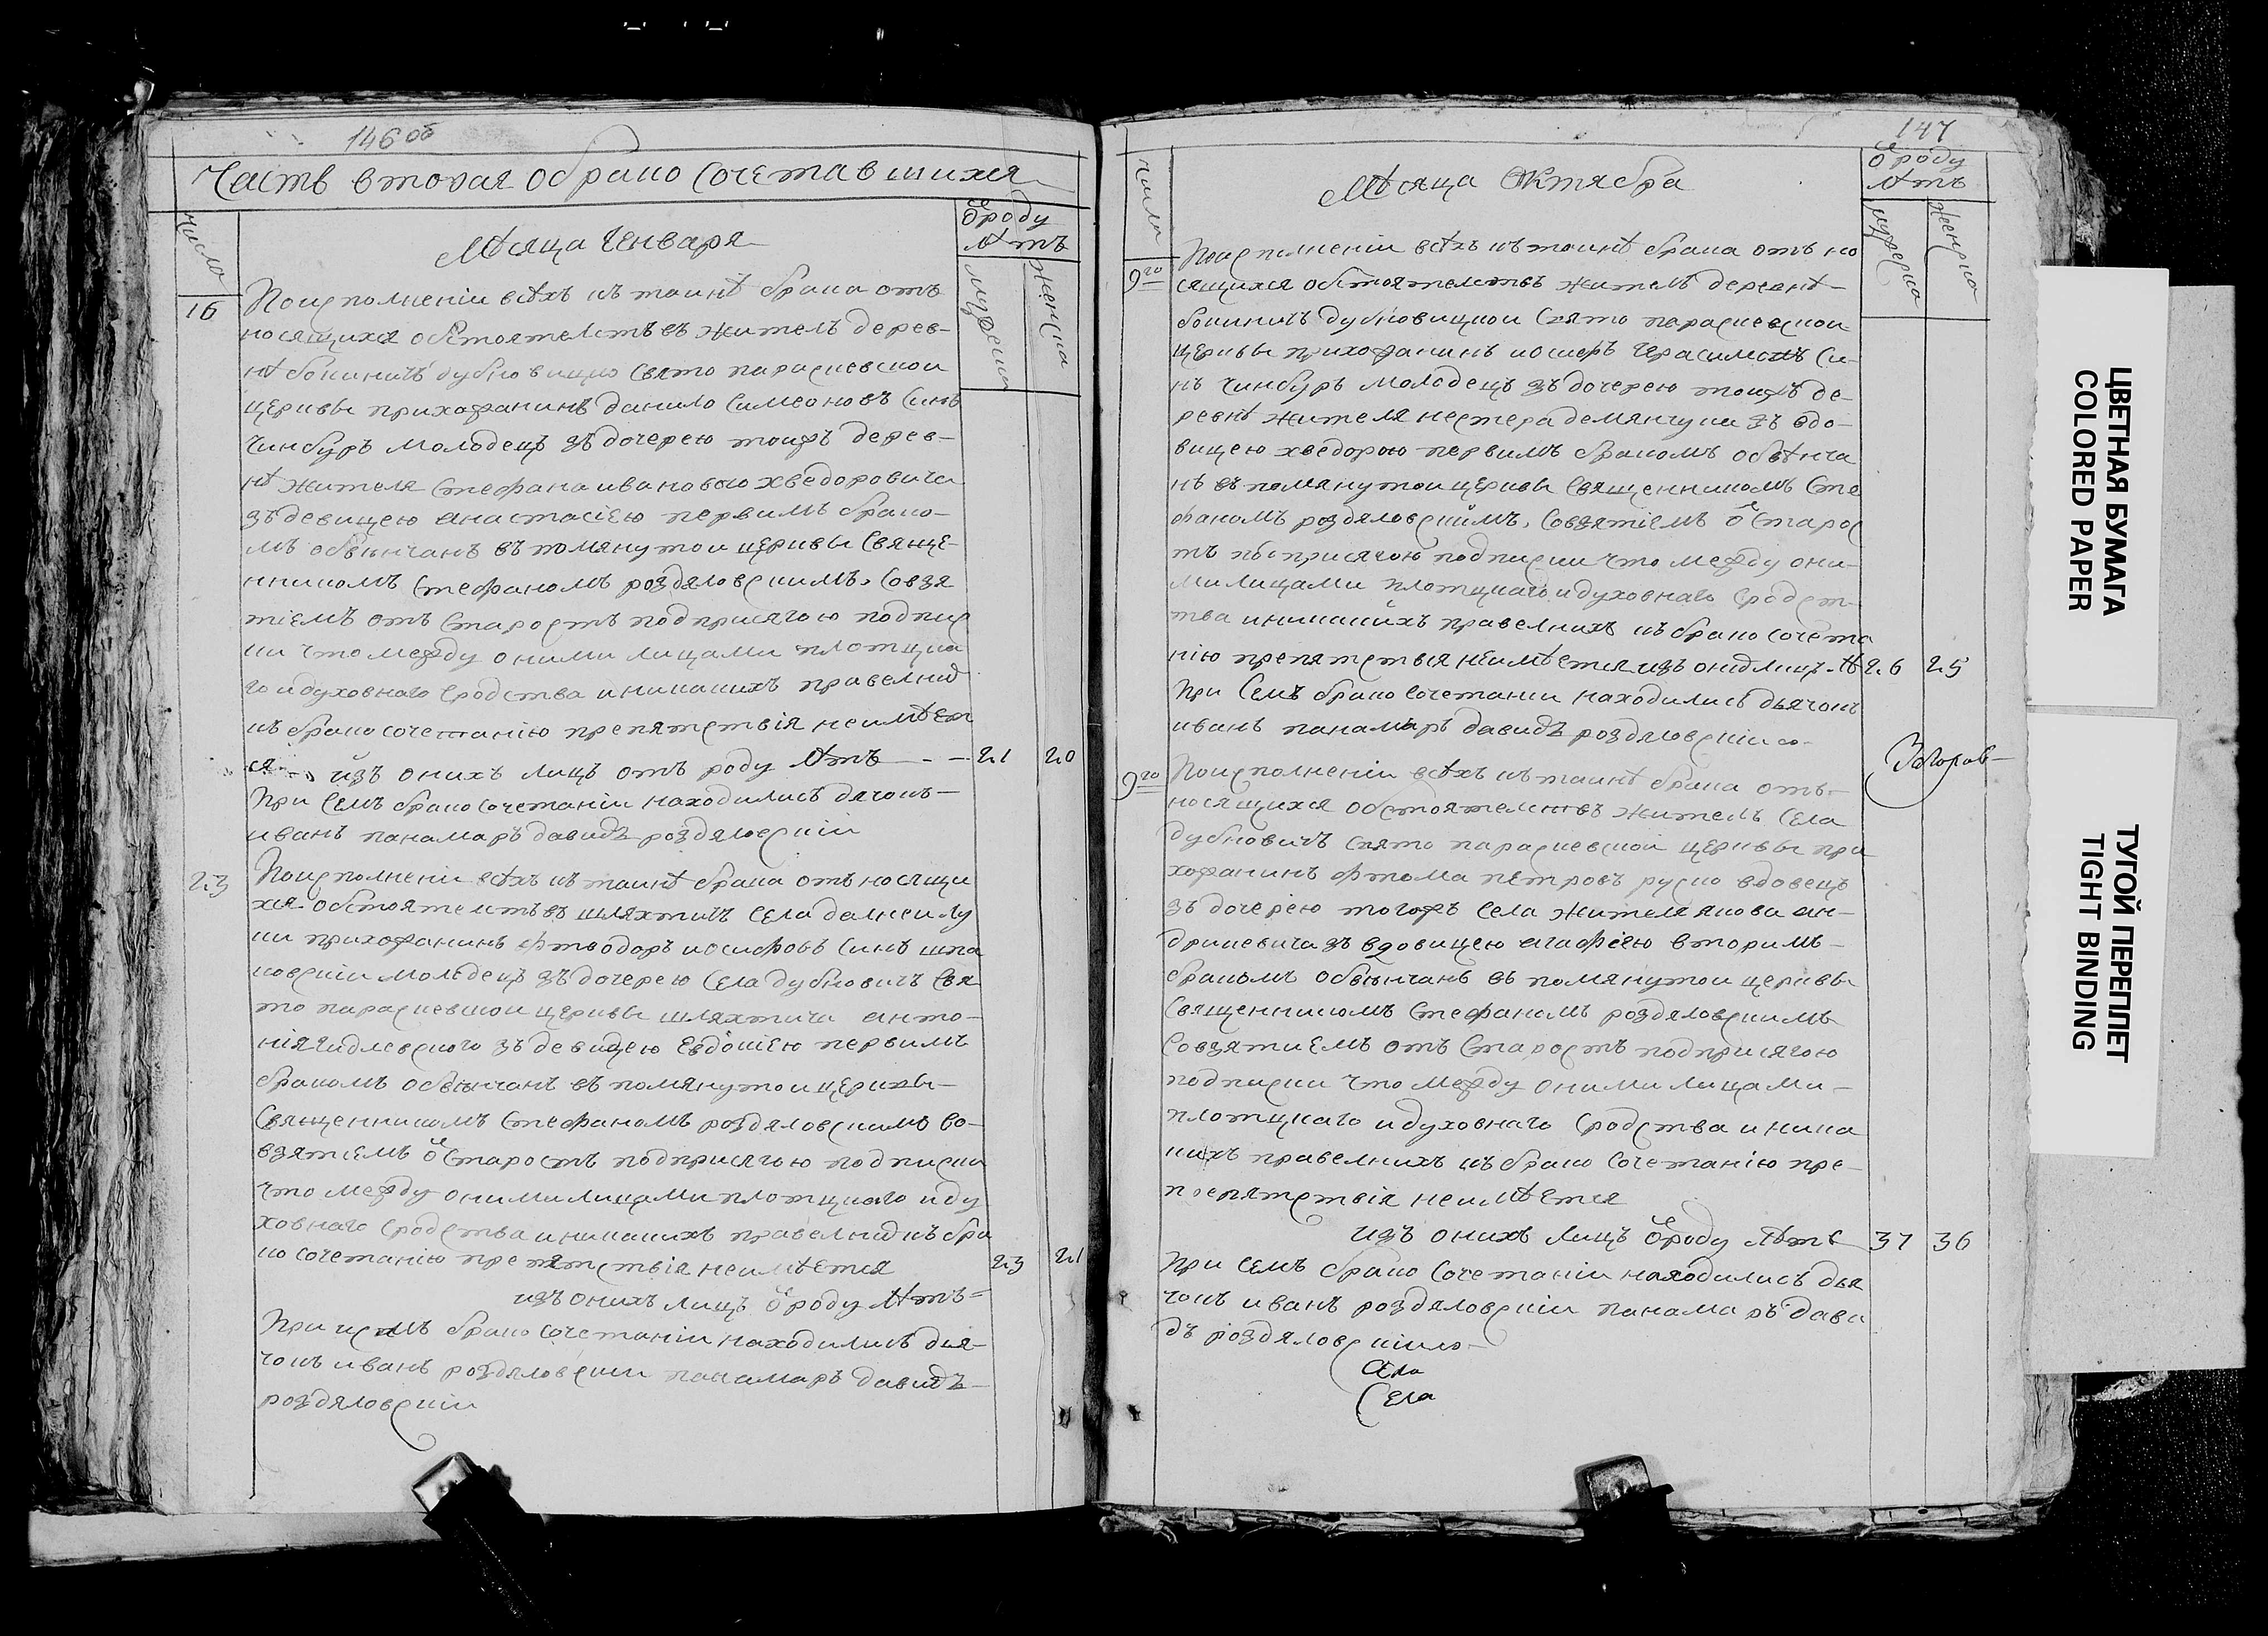 146 об
Часть вторая обрако Сочетавшихся
число
Мѣсяца Генваря
ѿроду
лѣтъ
мужеска
женска
16
Поисполненіи всѣхъ къ таинѣ брака отъ
носящихся обстоятелствъ въ житель дерев-
нѣ бокиничъ дубновицко Свято параскевской
церквы прихожанинъ данило Симеоновъ Синъ
Чинбуръ молодецъ зъ дочерею тоижъ дерев-
нѣ жителя Стефана ивановаго хведоровича
зъ девицею анастасіею первимъ брако-
мъ обвѣнчанъ въ помянутои церквы Свяще-
нникомъ Стефаномъ роздяловскимъ, Совзя
тіемъ отъ Старостъ подприсягою подпис
ки что между оними лицами плотцка
го и духовнаго Сродства и никакихъ правелних
къ бракосочетанію препятствія неимѣет
ся из онихъ лицъ отъ роду лѣтъ - - 21 20
При Семъ бракосочетаніи находились дячокъ-
иванъ панамаръ давидъ роздяловскій
23
Поисполнени всѣхъ къ таинѣ брака отъ носящи
хся обстоятелствъ шляхтичъ Села далнеи лу
ки прихожанинъ фтеодоръ иосифовъ Синъ шпа
ковскіи молодецъ зъ дочерею Села дубновичъ Свя
то параскевшои церквы шляхтича анто-
нія гидлевского зъ девицею Евдокіею первимъ
бракомъ обвѣнчанъ въ помянутои церквы-
Священникомъ Стефаномъ роздяловскимъ Со-
взятіемъ ѿ Старостъ подприсягою подписки
что между оними лицами плотцкаго и ду
ховнаго Сродства и никакихъ правелних къ бра
ко сочетанію препятствія неимѣется 23 21
изъ онихъ лицъ ѿроду лѣтъ=
При семъ брако Сочетаніи находились дья-
чокъ иванъ роздяловскіи панамаръ давидъ-
роздяловскіи
147
числа
Мѣсяца Октября
ѿроду
лѣтъ
мужеска
женска
9го
Поисполненіи всѣхъ къ таинѣ брака отъ но
сящихся обстоятелствъ житель деревнѣ-
бокиничъ дубновицкои Свято параскевскои
церквы прихожанинъ иосифъ Герасимовъ Си-
нъ Чинбуръ молодецъ зъ дочерею тоижъ де-
ревнѣ жителя нестера демянчука зъ вдо-
вицею хведорою первимъ бракомъ обвѣнча
нъ въ помянутои церквы Священникомъ Сте
фаномъ роздяловскимъ, Совзятіемъ ѿ Старос
тъ подприсягою подписки что между они-
ми лицами плотцкаго и духовнаго Сродст-
тва и никакихъ правелнихъ къ брако сочета
нію препятствія неимѣется изъ оних лицъ лѣ 26 25
При Семъ брако Сочетаніи находились дьячокъ
иванъ панамаръ давидъ роздяловскіи
9го
Поисполненіи всѣхъ къ таинѣ брака отъ-
носящихся обстоятелствъ житель Села
дубновичъ Свято параскевской церквы при
хожанинъ фтома петровъ руско вдовецъ
зъ дочерею тогожъ Села жителя якова ан-
дриевича зъ вдовицею агафіею вторимъ-
бракомъ обвѣнчанъ въ помянутои церквы
Священникомъ Стефаномъ роздяловскимъ
Совзятиемъ отъ Старостъ подприсягою
подписки что между оними лицами-
плотцкаго и духовнаго Сродства и ника
кихъ правелнихъ къ брако Сочетанію пре-
препятствія неимѣется
изъ онихъ лицъ ѿроду лѣтъ 37 36
При Семъ брако Сочетаніи находились дья
чокъ иванъ роздяловскіи панамаръ дави
дъ роздяловскіи
Села
Села
ЦВЕТНАЯ БУМАГА
COLORED PAPER
ТУГОЙ ПЕРЕПЛЕТ
TIGHT BINDING